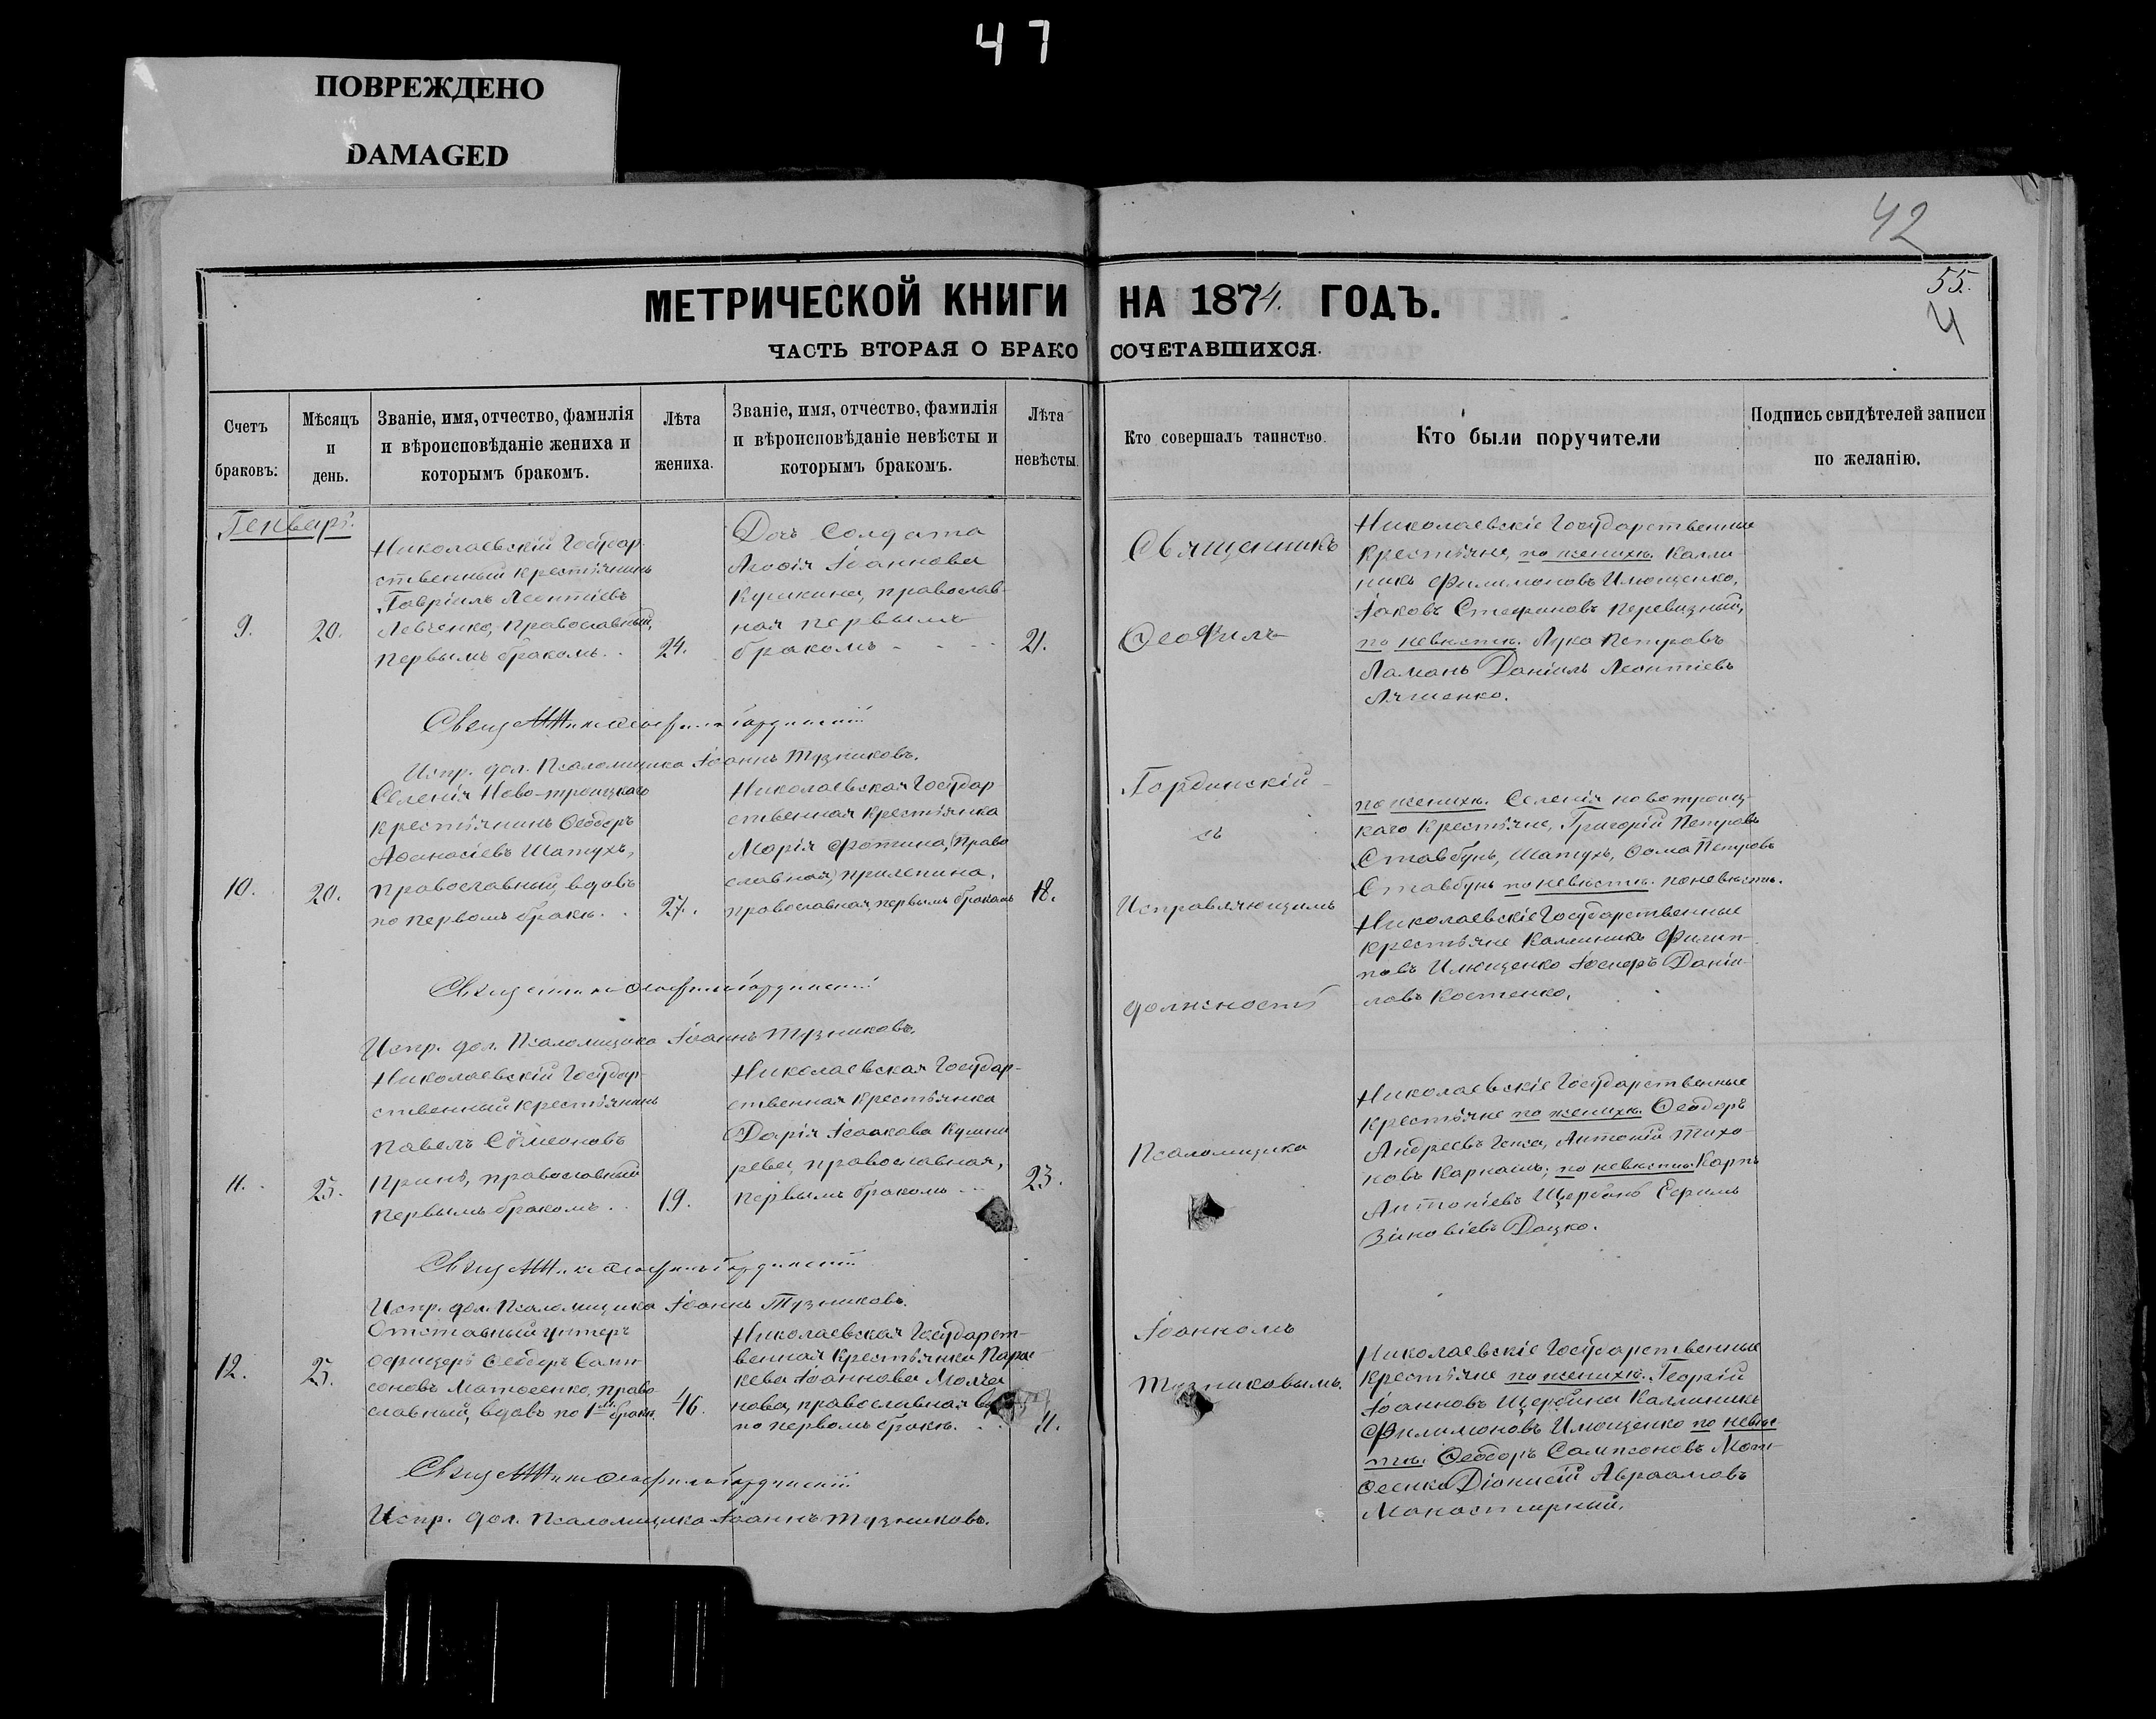 47
ПОВРЕЖДЕНО
DAMAGED
42
55.
4
МЕТРИЧЕСКОЙ КНИГИ НА 1874. ГОДЪ.
ЧАСТЬ ВТОРАЯ О БРАКОСОЧЕТАВШИХСЯ.
Счетъ
браковъ:
Мѣсяцъ
и
день.
Званіе, имя, отчество, фамилія
и вѣроисповѣданіе жениха и
которымъ бракомъ.
Лѣта
жениха.
Званіе, имя, отчество, фамилія
и вѣроисповѣданіе невѣсты и
которымъ бракомъ.
Лѣта
невѣсты.
Кто совершалъ таинство.
Кто были поручители
Подпись свидѣтелей записи
по желанію.
Генварь.
9.
20.
Николаевскій Государ-
ственный крестьянинъ
Гавріилъ Леонтіевъ
Левченко, Православный,
первымъ бракомъ.
24.
Дочь Солдата
Агафія Іоаннова
православ-
ная первымъ
бракомъ
21.
Николаевскіе Государственные
крестьяне, по женихѣ. Калли-
никъ Филимоновъ Илющенко,
Іаковъ Стефановъ Перевизный,
по невѣстѣ. Лука Петровъ
Ламань Даніилъ Леонтіевъ
Ляшенко.
Испр. дол. Псаломщика Іоаннъ Тузниковъ.
10.
20.
Селенія Ново-троицкаго
крестьянинъ Ѳеодоръ
Аѳанасіевъ Шатухъ,
православный, вдовъ
по первомъ бракѣ.
27.
Николаевская Государ
ственная крестьянка
Марія Фотина, Право
славная,
православная, первымъ бракомъ
18.
по женихѣ. Селенія новотроиц-
каго Крестьяне, Григорій Петровъ
Ставбунъ, Шатухъ, Ѳома Петровъ
Ставбунъ по невѣстѣ. по невѣстѣ.
Николаевскіе Государственные
крестьяне Каллиникъ Филип-
повъ Илющенко Іосифъ Даніи-
ловъ Костенко.
Испр. дол. Псаломщика Іоаннъ Тузниковъ.
11.
25.
Николаевскій Государ-
ственный крестьянинъ
Павелъ Сѵмеоновъ
православный
первымъ бракомъ.
19.
Николаевская Государ-
ственная крестьянка
Дарія Исаакова
православная,
первымъ бракомъ
23.
Николаевскіе Государственные
крестьяне по женихѣ. Ѳеодоръ
Андреевъ Антоній Тихо-
новъ по невѣстѣ. Карпъ
Антоніевъ Щербань Ефимъ
Зиновіевъ Дацко.
Испр. дол. Псаломщика Іоаннъ Тузниковъ.
12.
25.
Отставный унтеръ
офицеръ Ѳеодоръ Самп-
соновъ Матѳеенко, право-
славный, вдовъ по 1мъ бракѣ.
46.
Николаевская Государст-
венная крестьянка Парас-
кева Іоаннова Молча
нова, православная
по первомъ бракѣ.
41.
Николаевскіе Государственные
крестьяне по женихѣ. Георгій
Іоанновъ Щербина Каллиникъ
Филимоновъ Илющенко по невѣс-
тѣ. Ѳеодоръ Сампсоновъ Мат-
ѳеенко Діонисій Авраамовъ
Монастирный.
Испр. дол. Псаломщика Іоаннъ Тузниковъ.
Священникъ
Ѳеофилъ
Гординскій
съ
Исправляющимъ
должность
Псаломщика
Іоанномъ
Тузниковымъ.